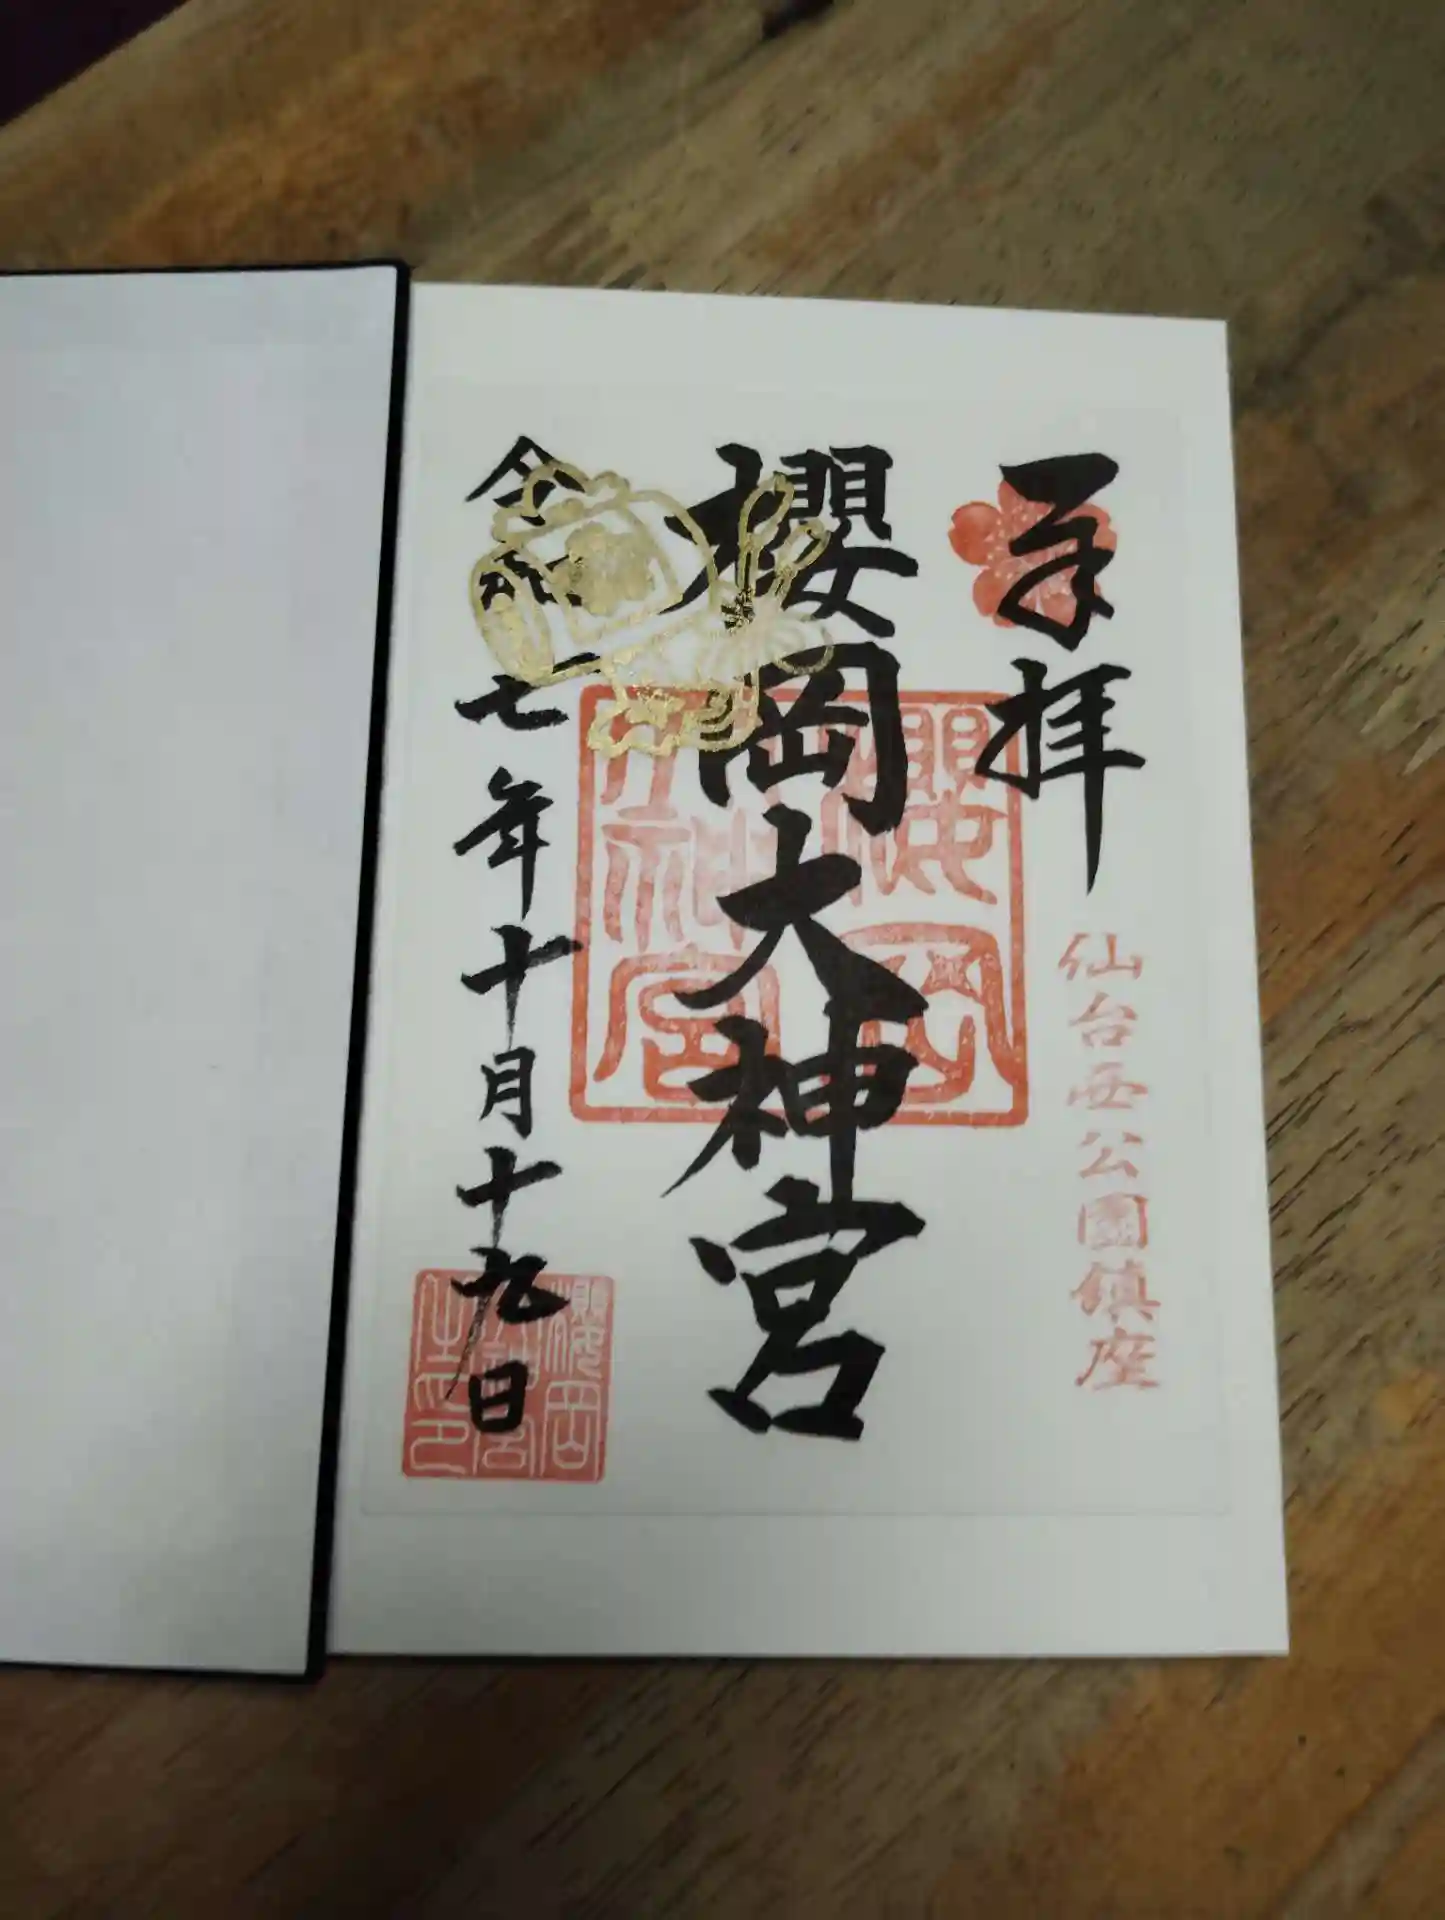 奉拝
仙台西公園鎮座
櫻岡大神宮
櫻岡
大神宮
令和七年十月十九日
櫻岡
大神宮
之印